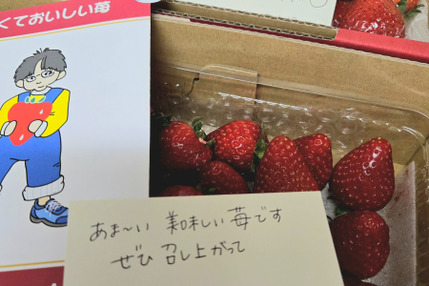 くておいしい苺
あま〜い 美味しい苺です
ぜひ 召し上がって